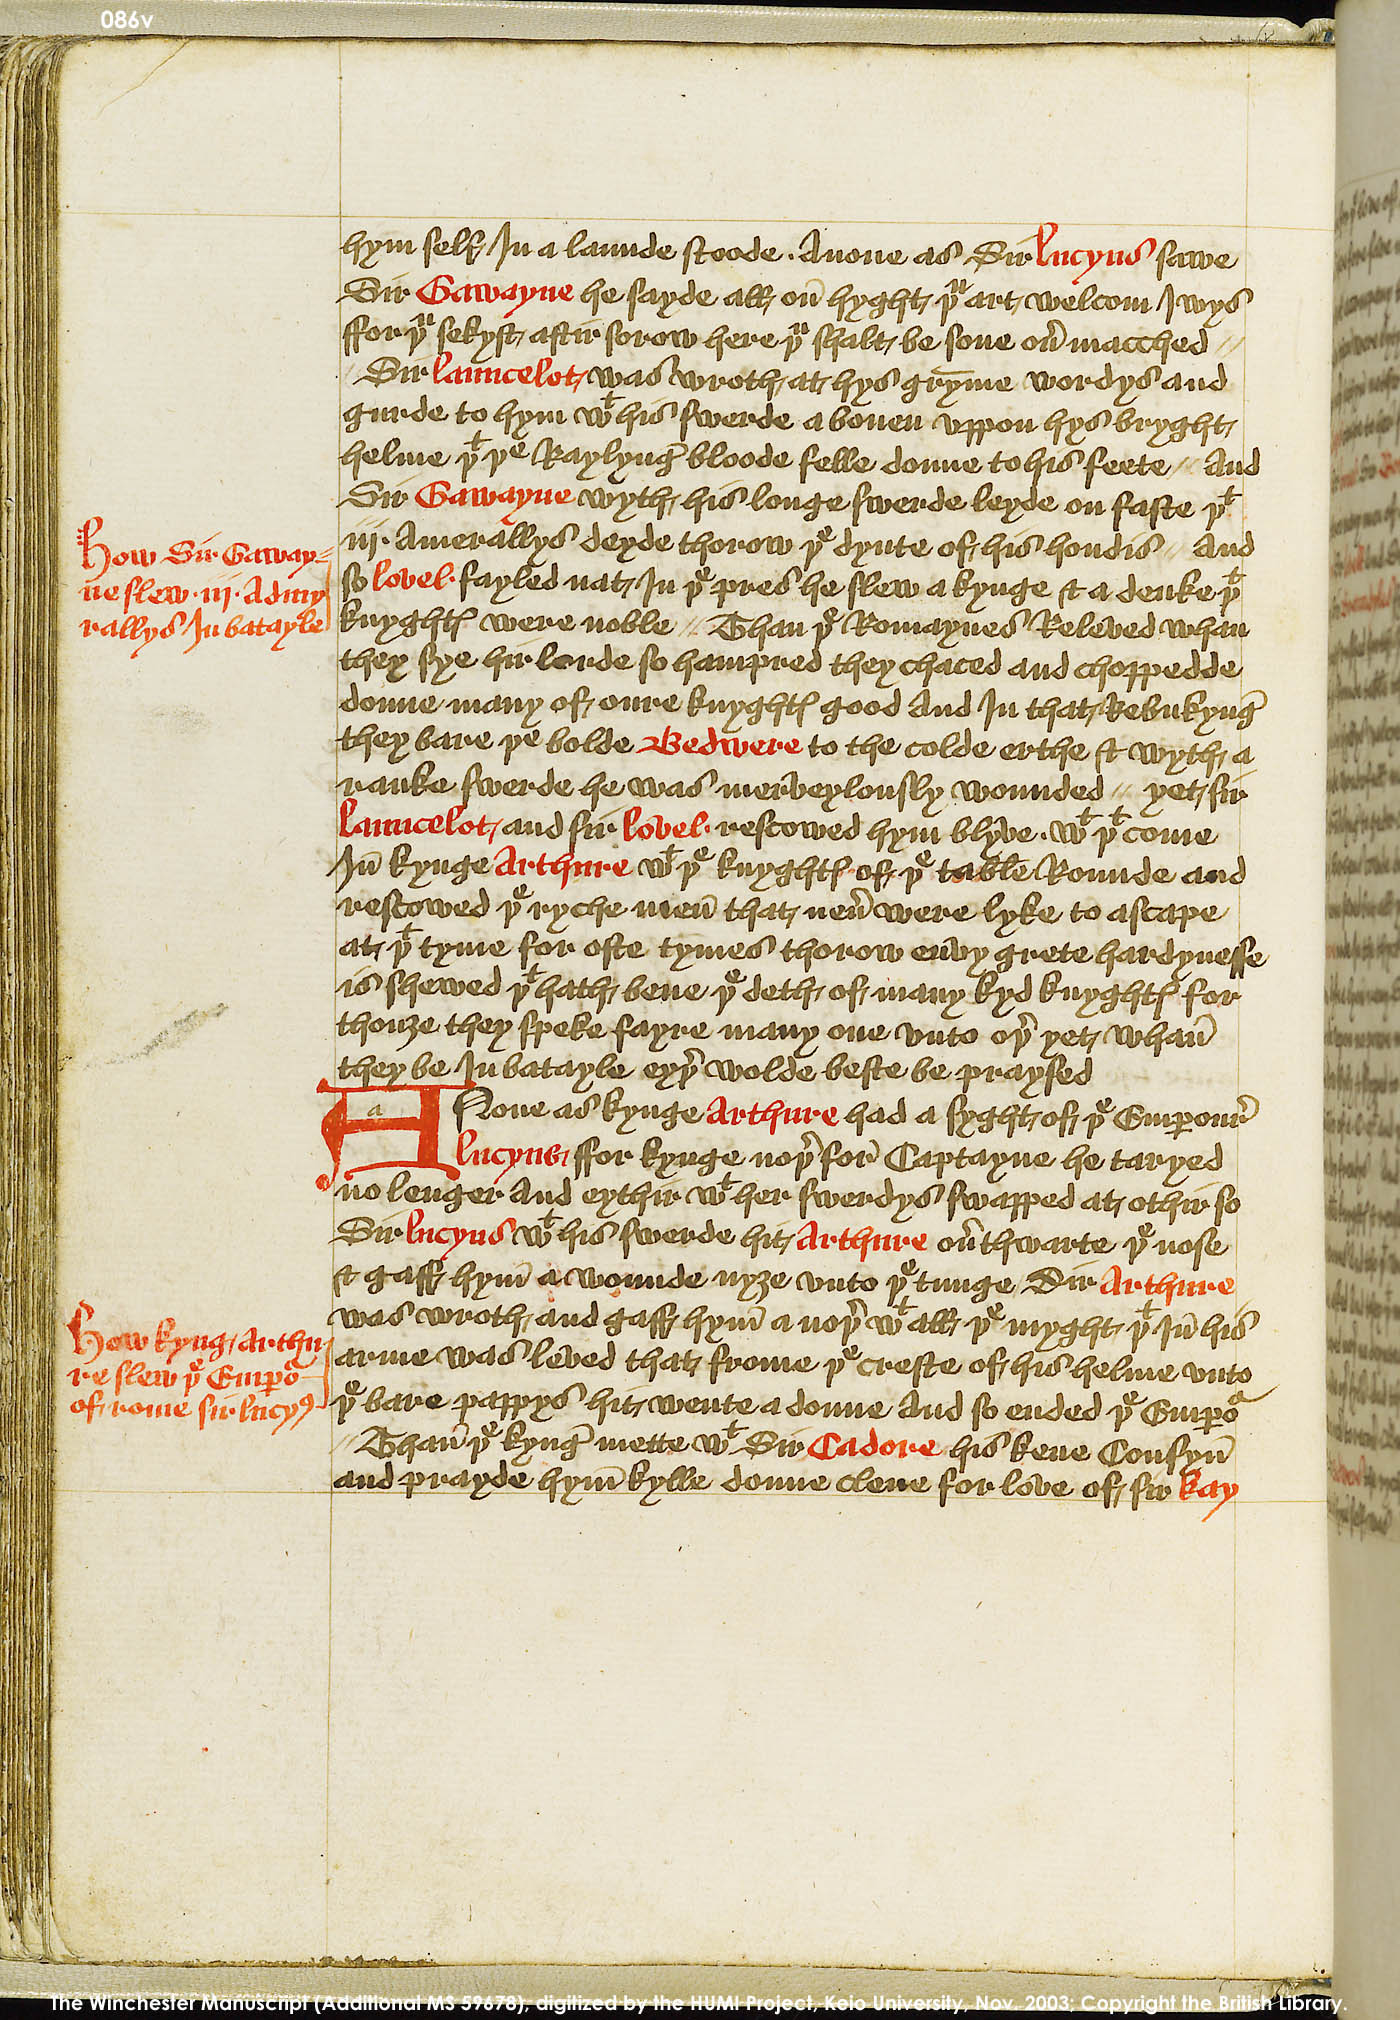 086v
hym self In a launde stoode . Anone as Sir Lucyus sawe
Sir Gawayne he sayde all on̄ hyght þu art welcom Iwys
ffor þu sekyst aftir sorow here þu shalt be sone ou̅ macched //
// Sir Launcelot was wroth at hys gryme wordys and
gurde to hym wt his swerde a boven vppon hys bryght
helme þt þe Raylyng bloode felle doune to his feete // And
Sir Gawayne wyth his longe swerde leyde on faste þt
iij. Amerallys deyde thorow þe dynte of his hondis // And
How Sir Gaway=
ne slew .iij. Admy
rallys In batayle
so Lovel. fayled nat In þe pres he slew a kynge & a deuke þt
knyghtꝭ were noble // Than þe Romaynes Releved whan
they sye hir lorde so hampred they chaced and choppedde
doune many of oure knyghtꝭ good And In that Rebukyng
they bare þe bolde Bedwere to the colde erthe & wyth a
ranke swerde he was merveylously wounded // yet sir
Launcelot and sir Lovel. rescowed hym blyve . wt þt come
In̄ kynge Arthure wt þe knyghtꝭ of þe table Rounde and
rescowed þe ryche men̄ that neu̅ were lyke to ascape
at þt tyme for ofte tymes thorow envy grete hardynesse
is shewed þt hath bene þe deth of many kyd knyghtꝭ for
thouȝe they speke fayre many one vnto oþ̅ yet whan̄
they be In batayle eyþ̅ wolde beste be praysed
a
ANone as kynge Arthure had a syght of þe Emꝑour̄
Lucyus ffor kynge noþ̅ for̄ Captayne he taryed
no lenger And eythir wt her swerdys swapped at othir so
Sir Lucyus wt his swerde hit Arthure ou̅thwarte þe nose
& gaff hym̄ a wounde nyȝe vnto þe tunge Sir Arthure
was wroth and gaff hym̄ a noþ̅ wt all þe myght þt In̄ his
How kyng Arthu
re slew þe Emꝑo
of rome sir lucyꝰ
arme was leved that frome þe creste of his helme vnto
þe bare pappys hit wente a doune And so ended þe Emꝑor
// Than̄ þe kyng mette wt Sir Cadore his kene Cousyn̄
and prayde hym̄ kylle doune clene for love of sir kay
The Winchester Manuscript (Additional MS 59678), digitized by the HUMI Project, Keio University, Nov. 2003; Copyright the British Library.